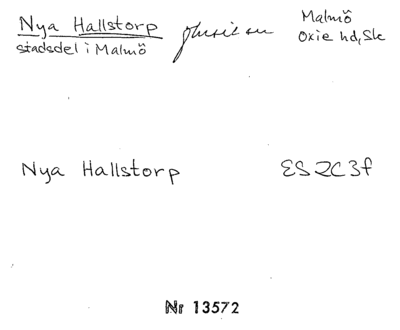 Nya Hallstorp
stadsdel i Malmö
Malmö
Oxie hd, Sk
Nya Hallstorp ES 2C3f
Nr 13572